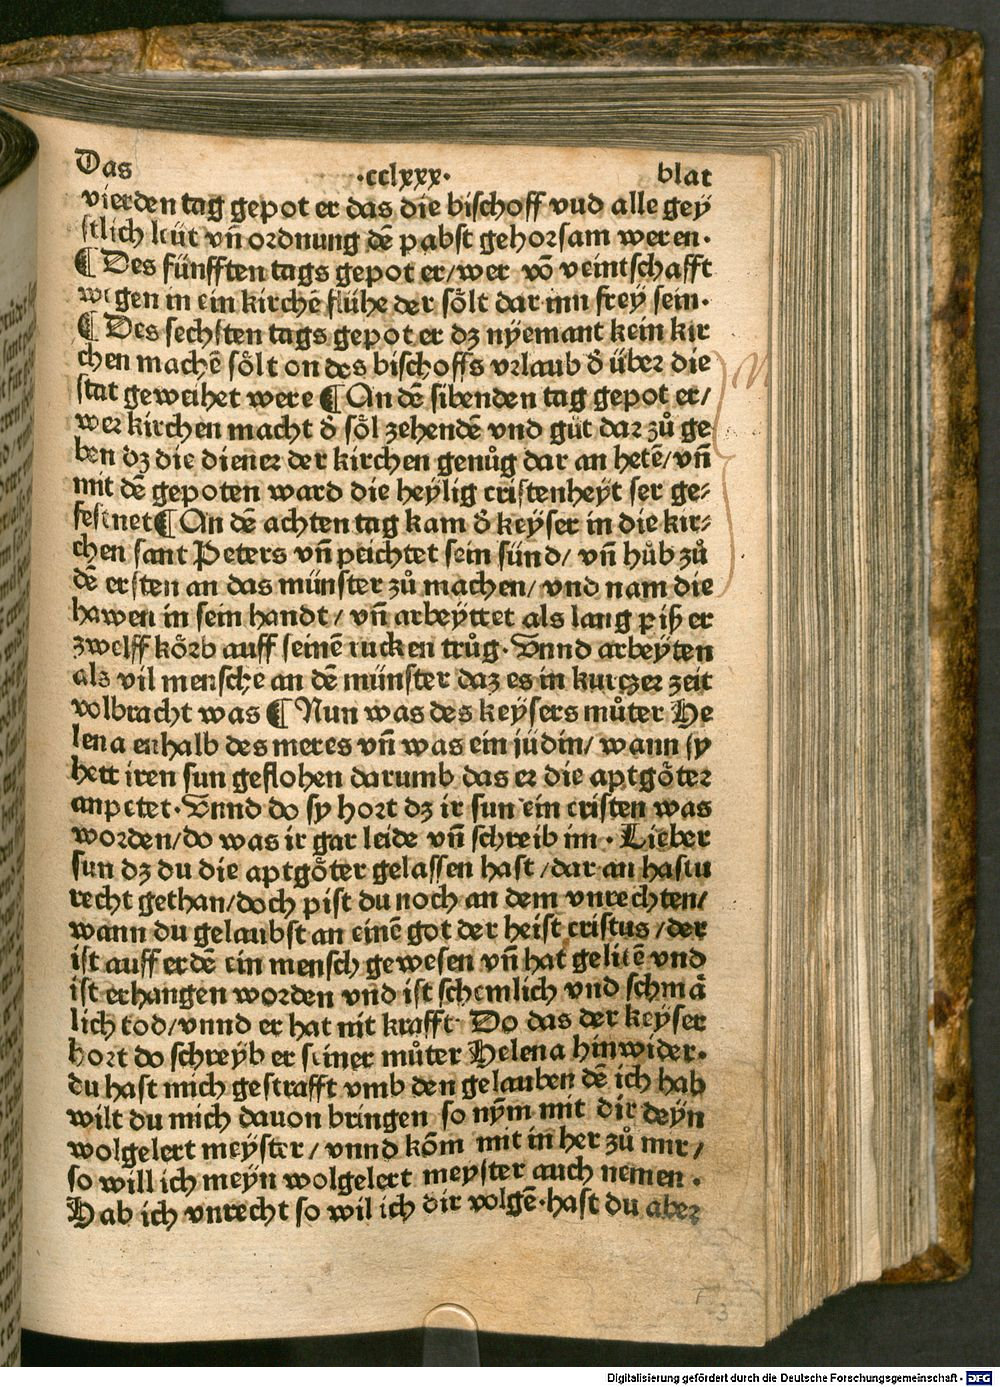 Das ·cclxxx· blat
vierden tag gepot er das die bischoff vnd alle gey
stlich leüt vñ ordnung dē pabst gehorsam weren·
¶ Des fünfften tags gepot er/wer vō veintschafft
wegen in ein kirchē flühe der sölt dar inn frey sein·
¶ Des sechsten tags gepot er dz nyemant kein kir
chen machē sölt on des bischoffs vrlaub d̓ über die
stat geweihet were ¶ An dē sibenden tag gepot er/
wer kirchen macht d̓ söl zehendē vnd gůt dar zů ge
ben dz die diener der kirchen genůg dar an hetē/vñ
mit dē gepoten ward die heylig cristenheyt ser ge⸗
festnet ¶ An dē achten tag kam d̓ keyser in die kir⸗
chen sant Peters vñ peichtet sein sünd/ vñ hůb zů
dē ersten an das münster zů machen/ vnd nam die
hawen in sein handt/ vñ arbeyttet als lang piß er
zwelff körb auff seinē rucken trůg· Vnnd arbeyten
als vil menschē an dē münster daz es in kurczer zeit
volbracht was ¶ Nun was des keysers můter He
lena enhalb des meres vñ was ein jüdin/ wann sy
hett iren sun geflohen darumb das er die aptgöter
anpetet· Vnnd do sy hort dz ir sun ein cristen was
worden/do was ir gar leide vñ schreib im· Lieber
sun dz du die aptgöter gelassen hast/dar an hastu
recht gethan/doch pist du noch an dem vnrechten/
wann du gelaubst an einē got der heist cristus/der
ist auff erdē ein mensch gewesen vñ hat gelitē vnd
ist erhangen worden vnd ist schemlich vnd schmä
lich tod/vnnd er hat nit krafft· Do das der keyser
hort do schreyb er seiner můter Helena hinwider·
du hast mich gestrafft vmb den gelauben dē ich hab
wilt du mich dauon bringen so nym mit dir deyn
wolgelert meyster/ vnnd kōm mit in her zů mir/
so will ich meyn wolgelert meyster auch nemen·
Hab ich vnrecht so wil ich dir volgē·hast du aber
Digitalisierung gefördert durch die Deutsche Forschungsgemeinschaft - DFG